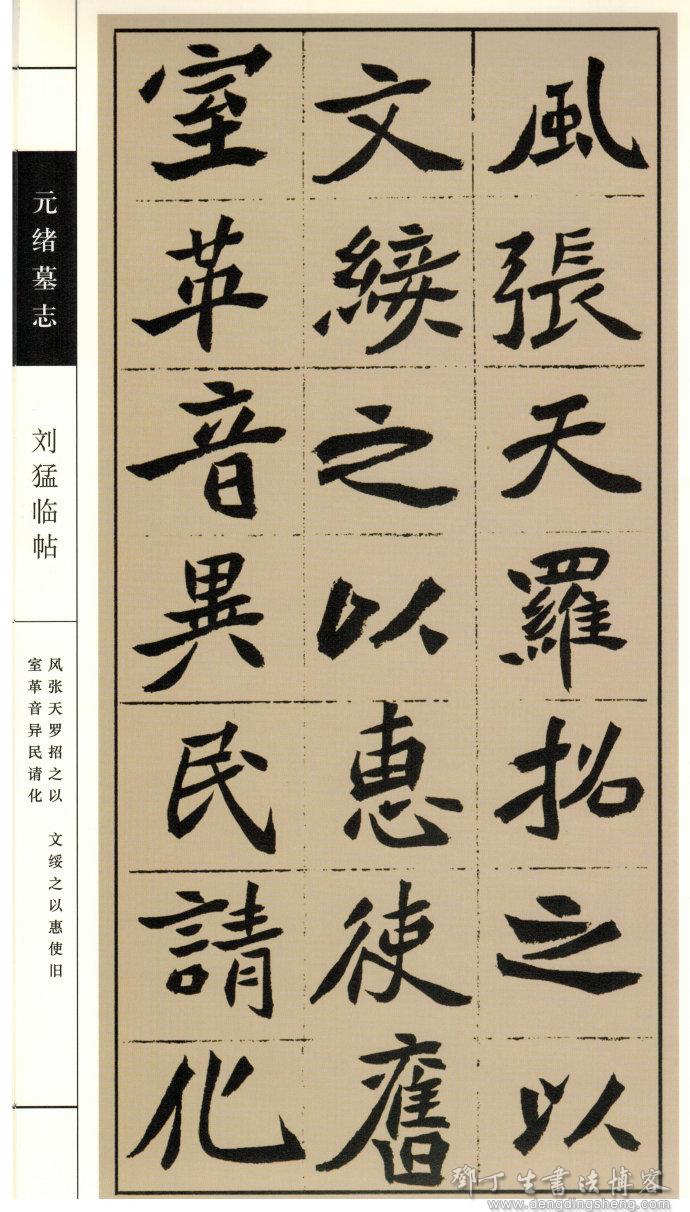 風張天羅招之以
文綏之以惠使舊
室革音異民請化
元绪墓志
刘猛临帖
风张天罗招之以 文绥之以惠使旧
室革音异民请化
鄧丁生书法博客
www.dengdingsheng.com